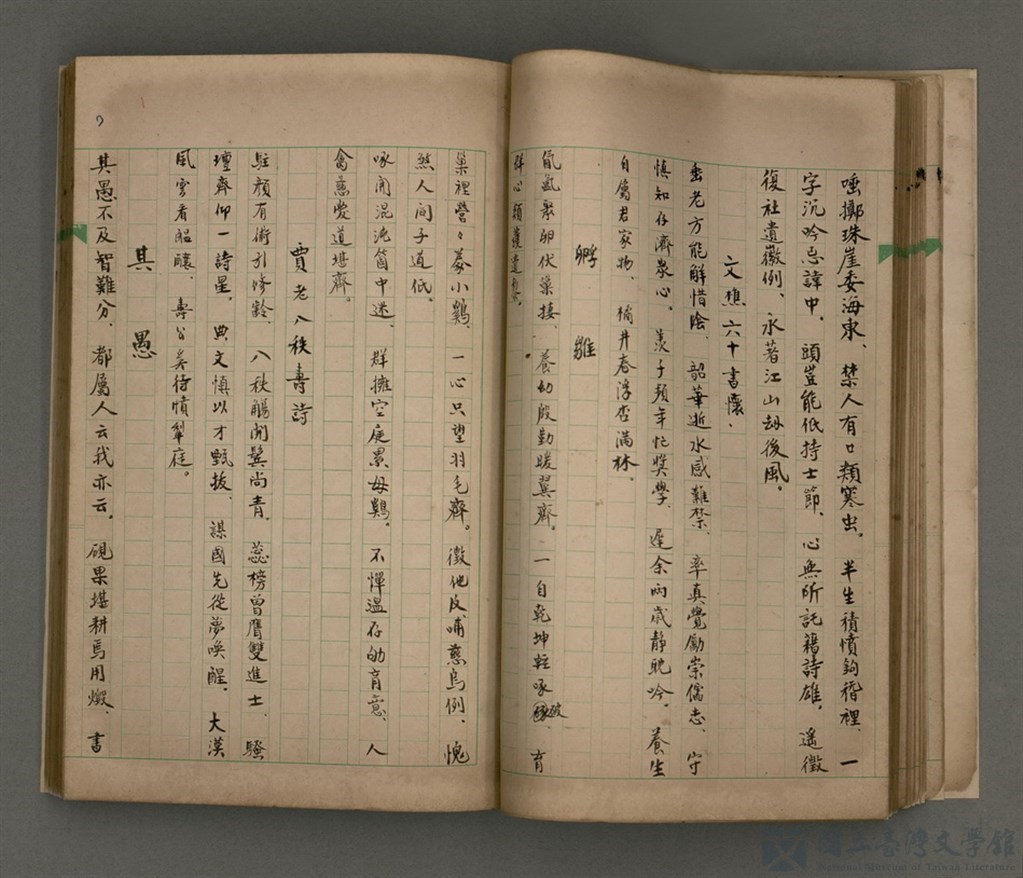 唾擲珠崖委海東、禁人有口類寒虫。半生積憤鈎稽裡、一
字沉吟忌諱中。頭豈能低持士節、心無所託藉詩雄。遙徵
復社遺徽例、永著江山劫後風。
文樵六十書懷.
垂老方能解惜陰、韶華逝水感難禁、率真覺勵崇儒志、守
慎知存濟衆心。羨子頻年忙獎學、遲余兩歲静耽吟。養生
自屬君家物、橘井春浮杏滿林.
孵雛
氤氳聚卵伏巢接、養幼殷勤暖翼齊。一自乾坤輕啄破、育
群心類
巢裡營々豢小鷄、一心只望羽毛齊。徵他反哺慈烏例、愧
煞人间子道低。
啄開混沌箇中迷、群擁空庭累母鷄。不憚溫存幼育意、人
禽慈愛道堪齊。
賈老八秩壽詩
駐顏有術引修齡、八秩觴開鬢尚青、蕊榜曾膺雙進士、騷
壇齊仰一詩星。典文慎以才甄拔、謀國先從夢喚醒、大漠
風雲看醖釀、壽公奚待憤犂庭。
其愚
其愚不及智難分、都屬人云我亦云。硯果堪耕焉用燬、書
國立臺灣文學館
National Museum of Taiwan Literature